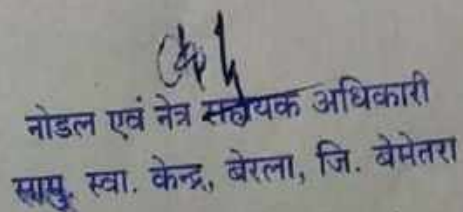 नोडल एवं नेत्र सहायक अधिकारी
सामु. स्वा. केन्द्र, बेरला, जि. बेमेतरा